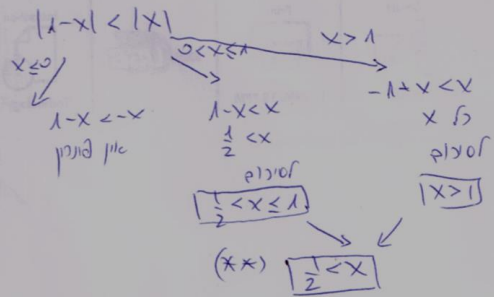 |1-x| < |x|
x≤0
0<x≤1
x>1
1-x<-x
אין פתרון
1-x<x
1/2 <x
לסיכום
1/2 <x≤1
-1+x<x
כל x
לסיכום
x>1
(**) 1/2 <x